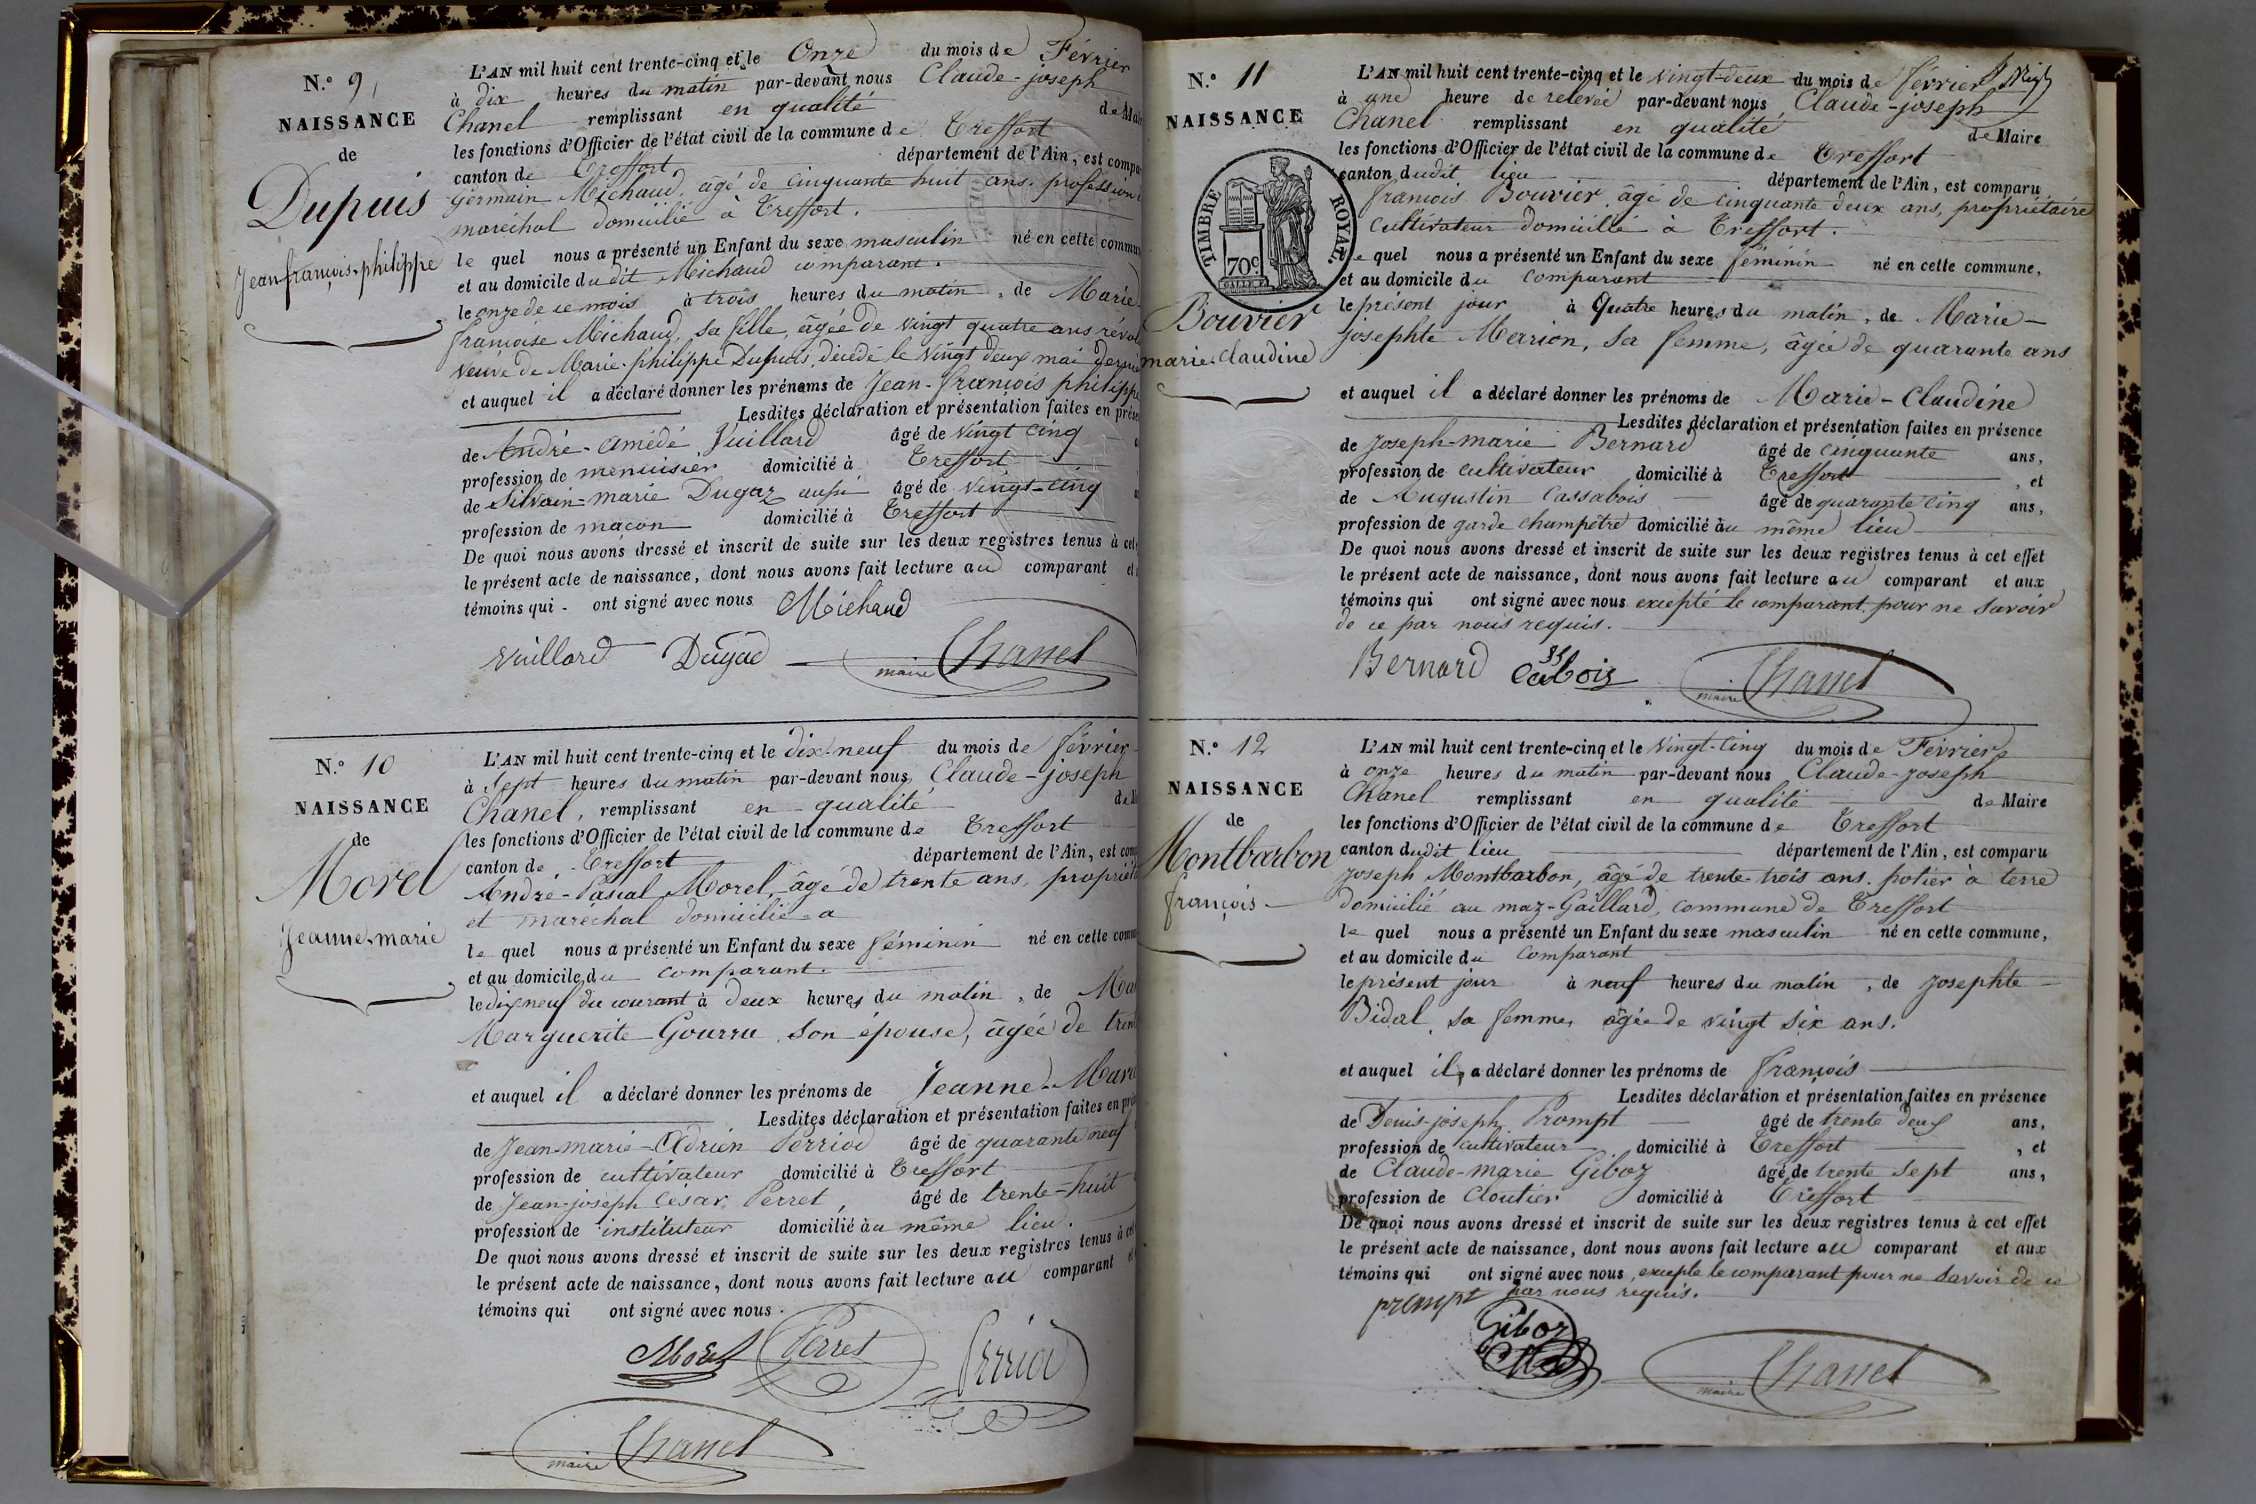 N.º 9,
NAISSANCE
de
Dupuis
Jean françois philippe
L'AN mil huit cent trente-cinq et le Onze du mois de Février
à dix heures du matin par-devant nous Claude-joseph
Chanel remplissant en qualité de Ma
les fonctions d'Officier de l'état civil de la commune de Treffort
canton de Treffort département de l'Ain, est compa
germain Michaud, âgé de cinquante huit ans, profession
maréchal domicilié à Treffort.
le quel nous a présenté un Enfant du sexe masculin né en cette commu
et au domicile du dit Michaud comparant.
le onze de ce mois à trois heures du matin, de Marie
françoise Michaud, sa fille, âgée de vingt quatre ans révol
veuve de Marie-philippe Dupuis, décédé le vingt deux mai
et auquel il a déclaré donner les prénoms de Jean-françois philippe
Lesdites déclaration et présentation faites en prése
de André-amédé Vuillard âgé de vingt cinq
profession de menuisier domicilié à Treffort
de Silvain-marie Dugaz aussi âgé de vingt-cinq
profession de maçon domicilié à Treffort
De quoi nous avons dressé et inscrit de suite sur les deux registres tenus à cet
le présent acte de naissance, dont nous avons fait lecture au comparant et
témoins qui ont signé avec nous Michaud
Vuillard Dugad maire Chanel
N.º 10
NAISSANCE
de
Morel
Jeanne-marie
L'AN mil huit cent trente-cinq et le dix-neuf du mois de février
à Sept heures du matin par-devant nous Claude-joseph
Chanel, remplissant en qualité de M
les fonctions d'Officier de l'état civil de la commune de Treffort
canton de Treffort département de l'Ain, est comp
André-Pascal Morel, âgé de trente ans, propriét
et marechal domicilié a
le quel nous a présenté un Enfant du sexe féminin né en cette comm
et au domicile du comparant.
le dix neuf du courant à deux heures du matin, de Ma
Marguerite Gourru, son épouse, âgée de tren
et auquel il a déclaré donner les prénoms de Jeanne-Marie
Lesdites déclaration et présentation faites en pré
de Jean-marie-Adrien Perriod âgé de quarante neuf
profession de cultivateur domicilié à Treffort
de Jean-joseph Cesar Perret, âgé de trente-huit
profession de instituteur domicilié au même lieu.
De quoi nous avons dressé et inscrit de suite sur les deux registres tenus à cet
le présent acte de naissance, dont nous avons fait lecture au comparant et
témoins qui ont signé avec nous.
Morel Perret Perriod
maire Chanel
N.º 11
NAISSANCE
TIMBRE ROYAL
70c
Bouvier
marie-Claudine
L'AN mil huit cent trente-cinq et le vingt-deux du mois de février
à une heure de relevée par-devant nous Claude-joseph
Chanel remplissant en qualité de Maire
les fonctions d'Officier de l'état civil de la commune de Treffort
canton dudit lieu département de l'Ain, est comparu
françois Bouvier, âgé de cinquante deux ans, propriétaire
cultivateur domicilié à Treffort.
le quel nous a présenté un Enfant du sexe féminin né en cette commune,
et au domicile du comparant
le présent jour à Quatre heures du matin, de Marie-
josephte Marion, sa femme, âgée de quarante ans
et auquel il a déclaré donner les prénoms de Marie-Claudine
Lesdites déclaration et présentation faites en présence
de joseph-marie Bernard âgé de cinquante ans,
profession de cultivateur domicilié à Treffort, et
de Augustin Cassabois âgé de quarante cinq ans,
profession de garde champêtre domicilié au même lieu
De quoi nous avons dressé et inscrit de suite sur les deux registres tenus à cet effet
le présent acte de naissance, dont nous avons fait lecture au comparant et aux
témoins qui ont signé avec nous excepté le comparant pour ne savoir
de ce par nous requis.
Bernard Cassabois maire Chanel
N.º 12
NAISSANCE
de
Montbarbon
françois
L'AN mil huit cent trente-cinq et le vingt-cinq du mois de Février
à onze heures du matin par-devant nous Claude-joseph
Chanel remplissant en qualité de Maire
les fonctions d'Officier de l'état civil de la commune de Treffort
canton dudit lieu département de l'Ain, est comparu
joseph Montbarbon, âgé de trente-trois ans, potier à terre
domicilié au maz-Gaillard, commune de Treffort
le quel nous a présenté un Enfant du sexe masculin né en cette commune,
et au domicile du comparant
le présent jour à neuf heures du matin, de josephte
Bidal, sa femme, âgée de vingt six ans.
et auquel il a déclaré donner les prénoms de françois
Lesdites déclaration et présentation faites en présence
de Denis-joseph Prompt âgé de trente deux ans,
profession de cultivateur domicilié à Treffort, et
de Claude-marie Giboz âgé de trente sept ans,
profession de Cloutier domicilié à Treffort
De quoi nous avons dressé et inscrit de suite sur les deux registres tenus à cet effet
le présent acte de naissance, dont nous avons fait lecture au comparant et aux
témoins qui ont signé avec nous, excepté le comparant pour ne savoir de ce
par nous requis.
prompt Giboz
maire Chanel